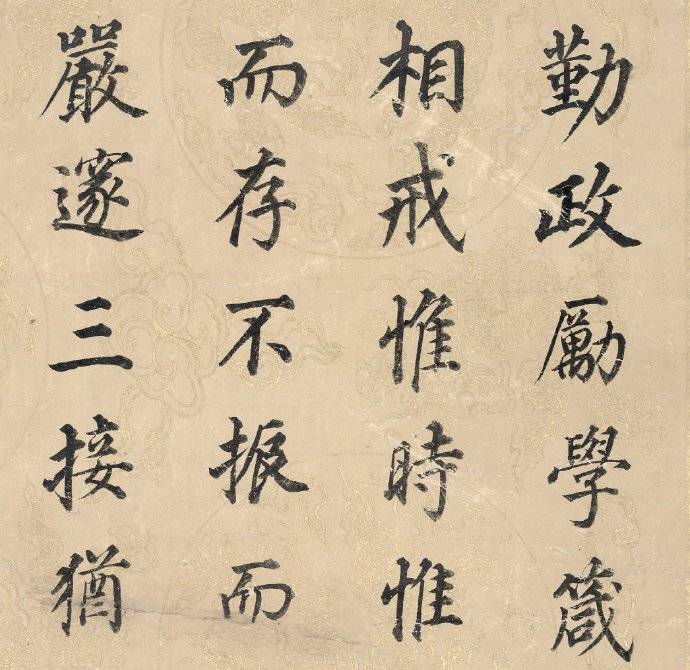 勤政勵學箴
相戒惟時惟
而存不振而
嚴邃三接猶